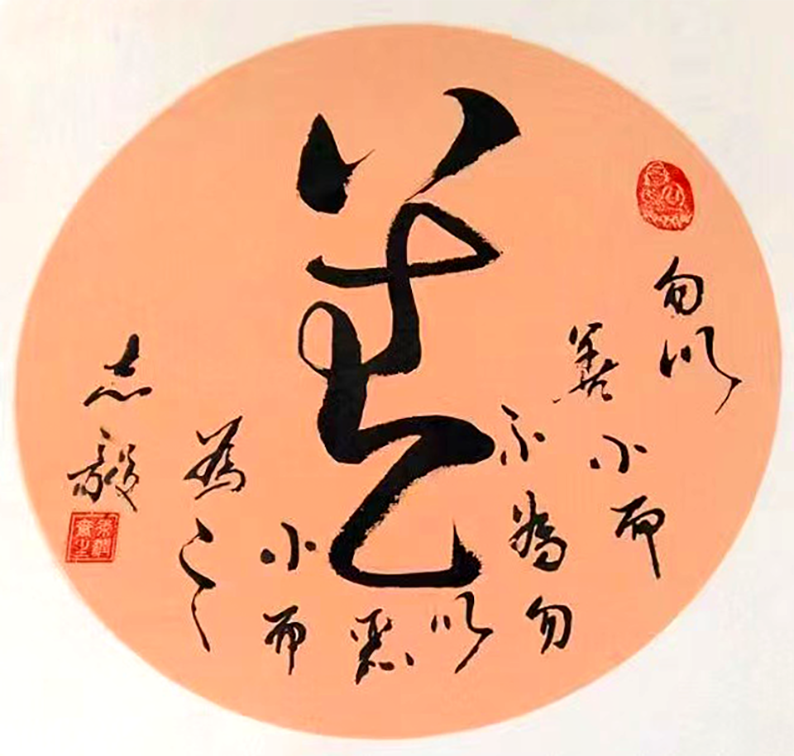 善
勿以
善小而
不為勿
以
惡
小而
為之
志毅